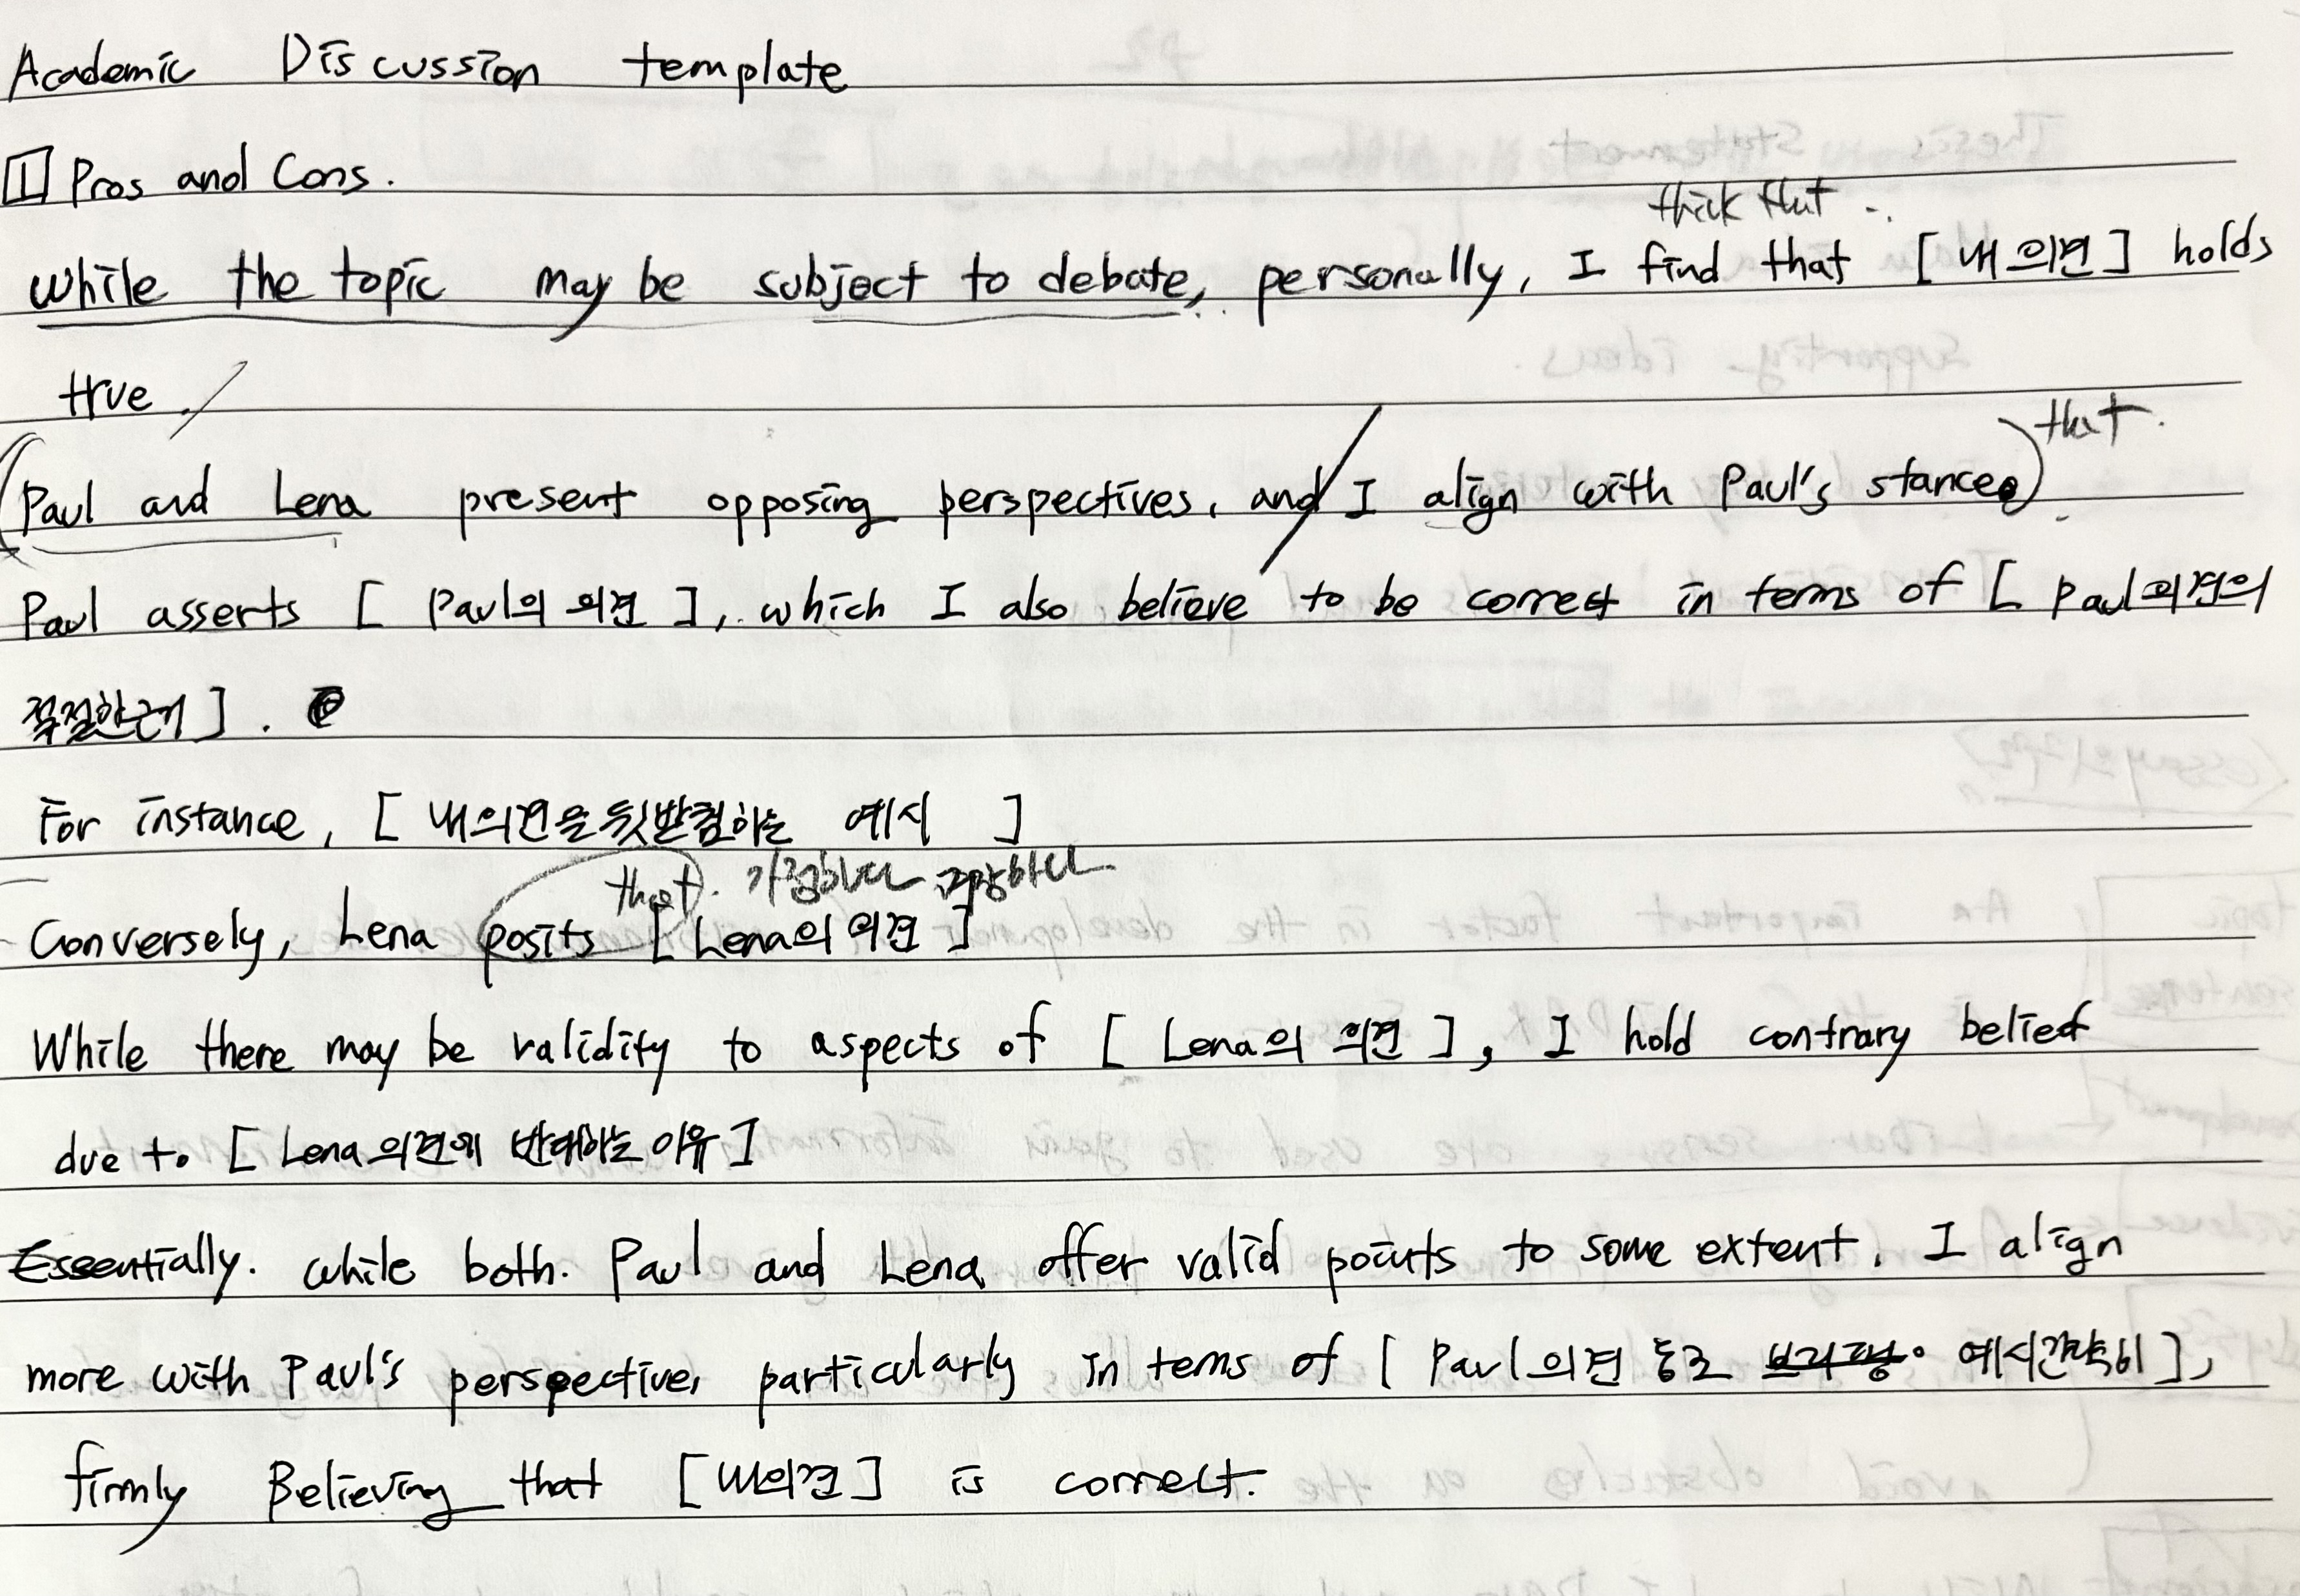 Academic Discussion template
1 Pros and Cons.
thick that
While the topic may be subject to debate, personally, I find that [ 내 의견 ] holds
true.
that.
Paul and Lena present opposing perspectives, and I align with Paul's stance.
Paul asserts [ Paul의 의견 ], which I also believe to be correct in terms of [ Paul의견의
적절한근거 ].
For instance, [ 내의견을 뒷받침하는 예시 ]
that. 가정하다
Conversely, Lena posits [ Lena의 의견 ]
While there may be validity to aspects of [ Lena의 의견 ], I hold contrary belief
due to [ Lena의견에 반대하는 이유 ]
Essentially. while both. Paul and Lena offer valid points to some extent, I align
more with Paul's perspective, particularly in tems of [ Paul의견 동조 브리핑 예시간략히 ],
firmly Believing that [ 내의견 ] is correct.